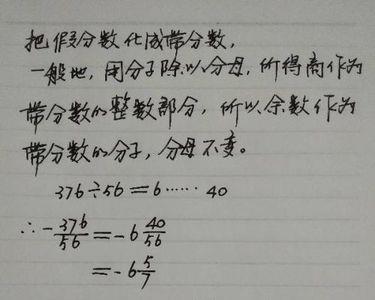 把假分数化成带分数，
一般地，用分子除以分母，所得商作为
带分数的整数部分，所以余数作为
带分数的分子，分母不变。
376÷56=6······40
∴-376/56=-6 40/56
=-6 5/7